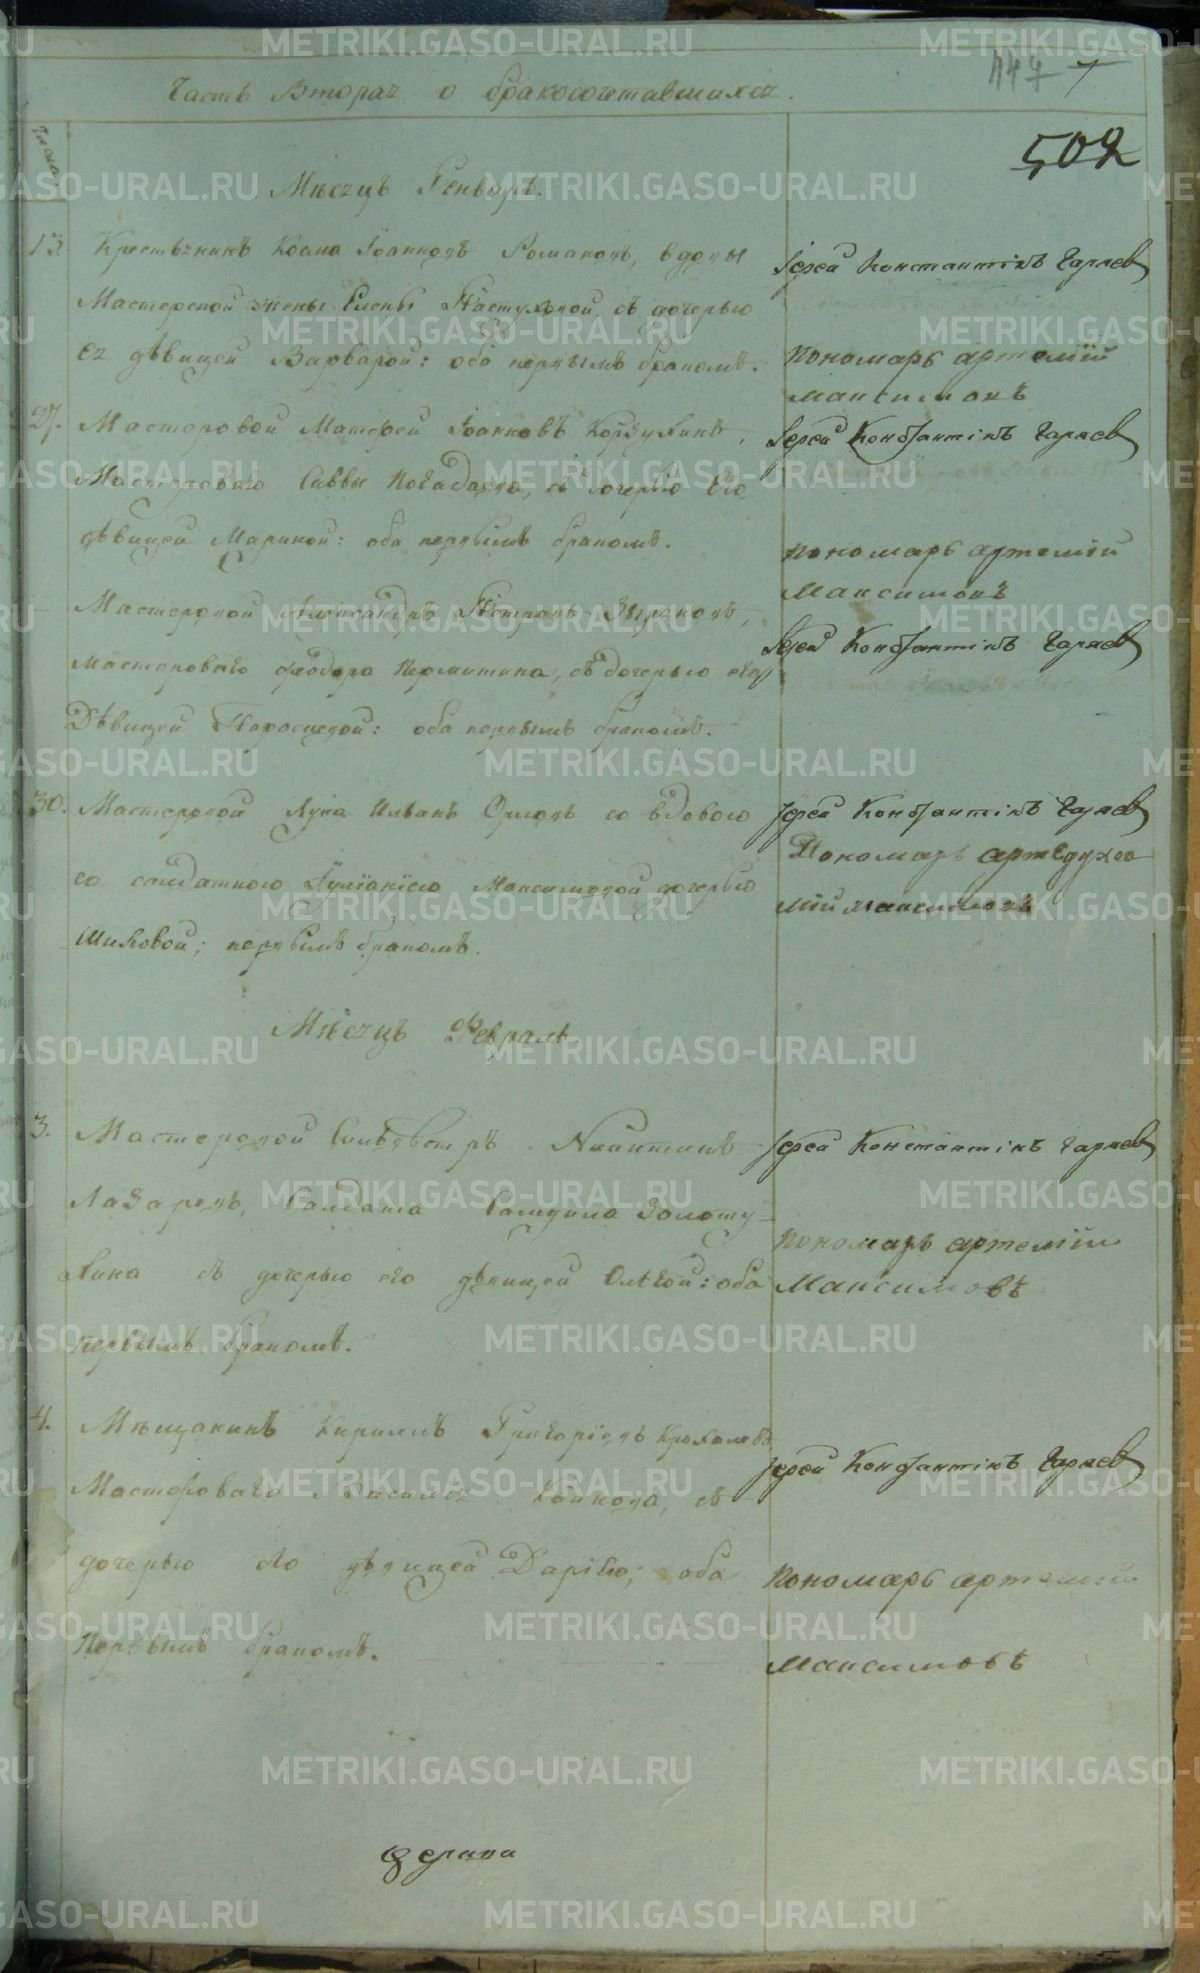 Часть Вторая о бракосочетавшихся.
502
Мѣсяцъ Генварь.
13. Крестьянинъ Косма Іоанновъ Романовъ, вдовы
Мастерской жены Елены Пастуховой, съ дочерью
ея дѣвицей Варварой: оба первымъ бракомъ.
Іерей Константінъ Гаряев
пономарь артемій
максимовъ
27. Мастеровой Матфей Іоанновъ Корзухинъ,
Мастероваго Саввы Погадаева, съ дочерью его
дѣвицей Мариной: оба первымъ бракомъ.
Іерей Константінъ Гаряев
пономарь артемій
максимовъ
Мастеровой Александръ Петровъ Зыряновъ,
мастероваго Феодора Пермитина, съ дочерью его
Дѣвицей Параскевой: оба первымъ бракомъ.
Іерей Константінъ Гаряев
30. Мастеровой Лука Ивановъ Орловъ со вдовою
со солдаткою Іуліаніею Максимовой дочерью
Шиховой; первымъ бракомъ.
Іерей Константінъ Гаряев
Пономарь
мій максимовъ
Мѣсяцъ Февраль.
3. Мастеровой Сильвестръ Никитинъ
Лазаревъ, Солдата Золоту-
хина съ дочерью его дѣвицей Ольгой: оба
первымъ бракомъ.
Іерей Константінъ Гаряев
пономарь артемій
Максимовъ
4. Мѣщанинъ Кириллъ Григоріевъ Крохалевъ,
Мастероваго Василья Кайкова, съ
дочерью его дѣвицей Даріею; оба
Первымъ бракомъ.
Іерей Константінъ Гаряев
пономарь артемій
максимовъ
METRIKI.GASO-URAL.RU